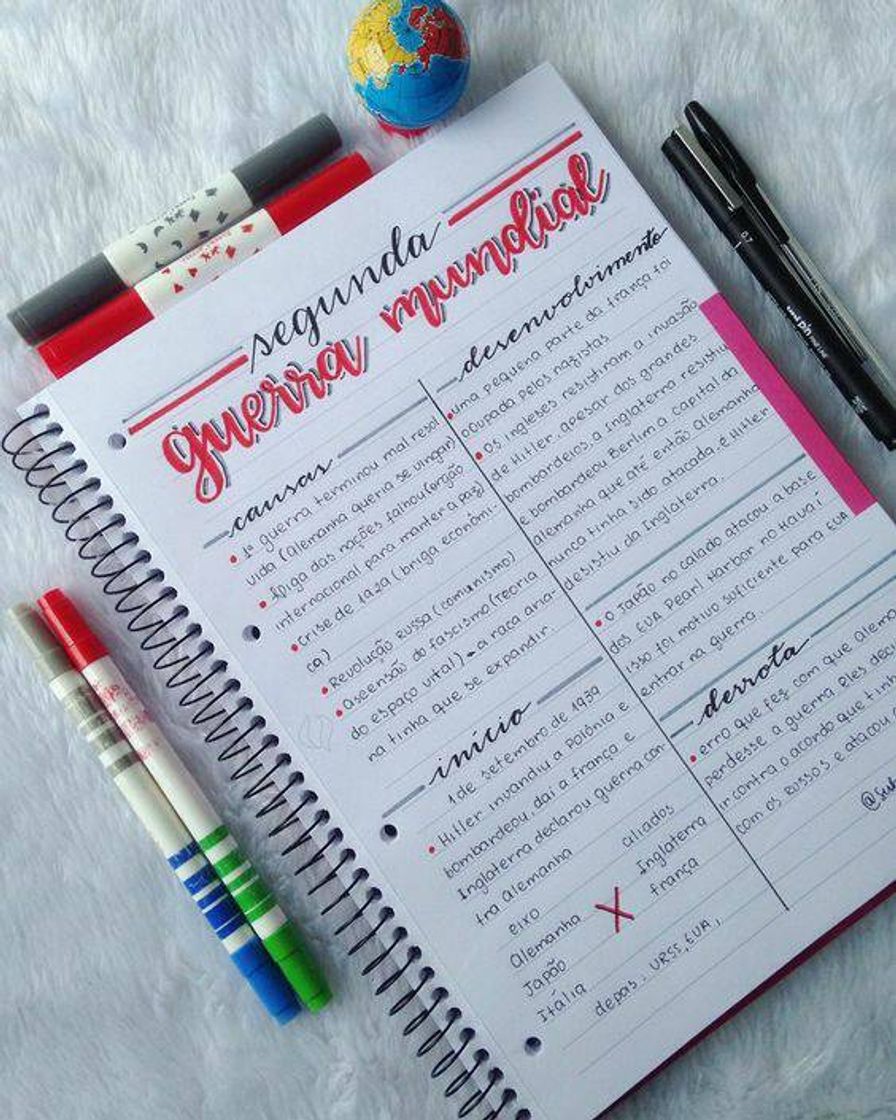 segunda
guerra mundial
causas
• 1ª guerra terminou mal resol
vida (Alemanha queria se vingar)
• Aliga das nações falhou (órgão
internacional para manter a paz)
• crise de 1929 (briga econômi-
ca)
• Revolução Russa (comunismo)
• Ascensão do fascismo (Teoria
do espaço vital) → a raça aria-
na tinha que se expandir.
início
1 de setembro de 1939
• Hitler invandiu a Polônia e
bombardeou, daí a frança e
Inglaterra declarou guerra con-
tra Alemanha
eixo
aliados
Alemanha X Inglaterra
Japão
frança
Itália
depois: URSS, EUA,
desenvolvimento
• uma pequena parte da frança foi
ocupada pelos nazistas
• Os ingleses resistiram a invasão
de Hitler, apesar dos grandes
bombardeios, a Inglaterra resistiu
e bombardeou Berlim a capital da
Alemanha que até então Alemanha
nunca tinha sido atacada, e Hitler
desistiu da Inglaterra.
• O Japão no calado atacou a base
dos EUA Pearl Harbor no Havaí
isso foi motivo suficiente para EUA
entrar na guerra.
derrota
• erro que fez com que Alem
perdesse a guerra Eles deci
ir contra o acordo que tin
com os Russos e atacou
0.7
uni pin
FINE LINE